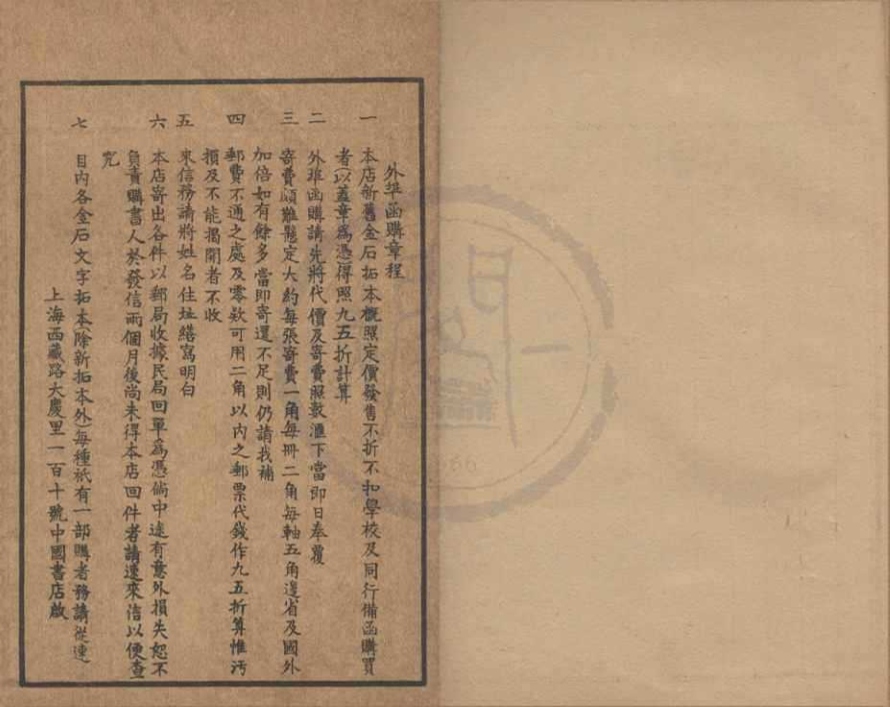 外埠函購章程
一　本店新舊金石拓本概照定價發售不折不扣學校及同行備函購買
者(以蓋章為憑)得照九五折計算
二　外埠函購請先將代價及寄費照數滙下當即日奉覆
三　寄費頗難懸定大約每張寄費一角每冊二角每軸五角邊省及國外
加倍如有餘多當即寄還不足則仍請找補
四　郵費不通之處及零欵可用二角以內之郵票代錢作九五折算惟汚
損及不能揭開者不收
五　來信務請將姓名住址繕寫明白
六　本店寄出各件以郵局收據民局回單為憑倘中途有意外損失恕不
負責購書人於發信兩個月後尚未得本店回件者請速來信以便查
究
七　目內各金石文字拓本(除新拓本外)每種祇有一部購者務請從速
上海西藏路大慶里一百十號中國書店啟